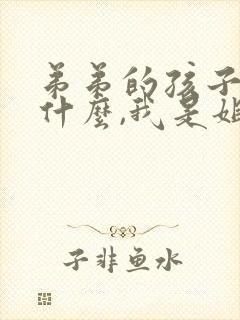 弟弟的孩子
什麼,我是姐
子非鱼水